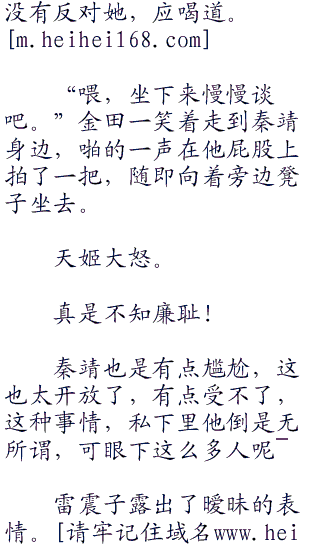 没有反对她，应喝道。
[m.heihei168.com]
“喂，坐下来慢慢谈
吧。”金田一笑着走到秦靖
身边，啪的一声在他屁股上
拍了一把，随即向着旁边凳
子坐去。
天姬大怒。
真是不知廉耻！
秦靖也是有点尴尬，这
也太开放了，有点受不了，
这种事情，私下里他倒是无
所谓，可眼下这么多人呢¯
雷震子露出了暧昧的表
情。[请牢记住域名www.hei